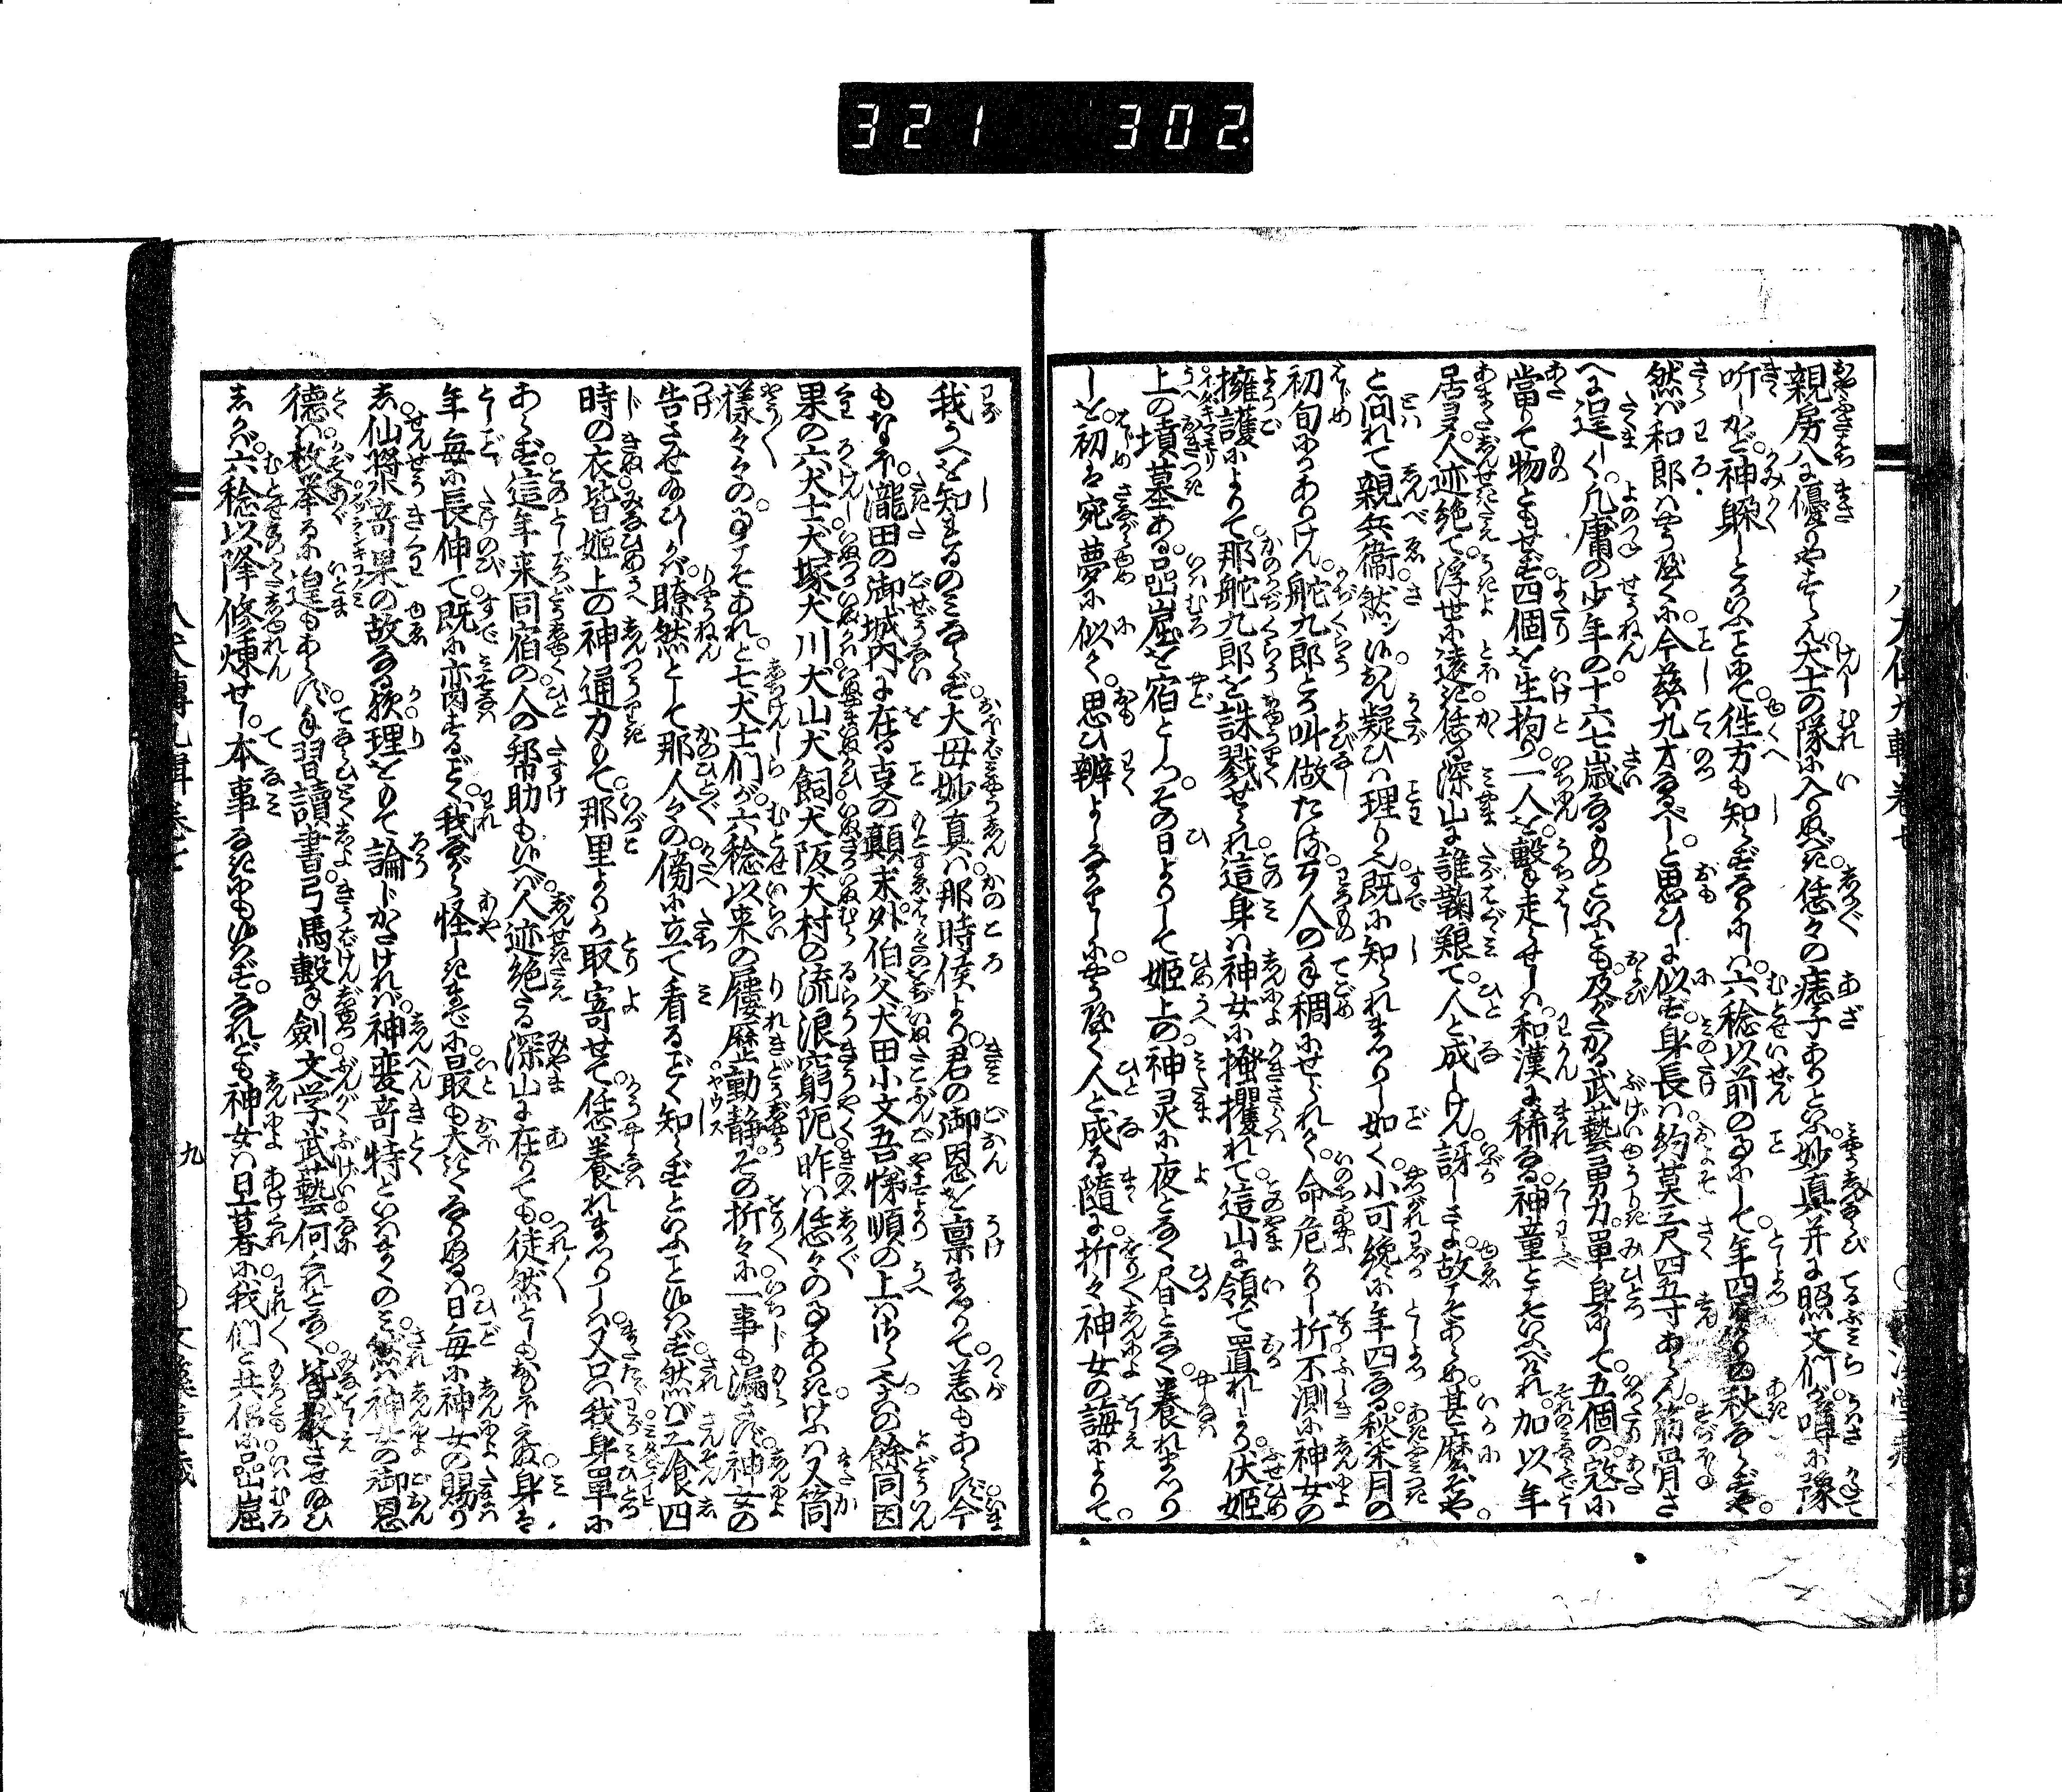 321 302
親房八に優りやすらん。犬士の隊に入りぬべき。恁々の痣子ありといふ。妙真并に照文們が噂に豫
听しかど。神躱しとらいふことにて。徃方も知らずなりにしは。六稔以前の事にして。年四才なりし秋ならずや。
然ば和郎はやうやくに。今茲は九才なるべし。と思ひしに似ず。身長は。約莫三尺四五寸あらん。筋骨さ
へに逞しく。凡庸の少年の。十六七歳なるものといふとも。及びがたかる武藝勇力。單身にして。五個の寇に
當りて物ともせず。四個を生拘り。一人を轂走らせしは。和漢に稀なる。神童とこそいふべけれ。加以年
居る人迹絶て。浮世に遠き恁る深山に誰鞠艱て。人と成しけん。訝しきよ。故こそあらめ。甚麽ぞや。
と問れて親兵衛然ン候。おん疑ひは理り也。既に知られまゐらせし如く。小可纔に年四なる。秋柒月の
初旬にかありけん。舵九郎とか叫做たる。歹人の手稠にせられて。命危かりし折。不測に神女の
擁護によりて。那舵九郎を誅戮せられ。這身は神女に掻攫れて。這山に領て置れしより。伏姫
上の墳墓ある。嵒窟を宿として。その日よりして姫上の。神灵に夜となく昼となく。養れまゐり
しを。初は宛夢に似て。思ひ辨よしなかりしに。やうやく人と成る隨に。折々神女の誨によりて。
我うへを知れるのみならず。大母妙真は。那時侯より。君の御恩を禀まゐりて。恙もあらず。今
もなほ。瀧田の御城内に在る支の顛末。外伯父犬田小文吾悌順の上はさら也。その餘同因
果の六犬士。犬塚犬川犬山犬飼犬阪犬村の流浪窮阨。昨は恁々の事ありき。けふは又箇
様々々の。事こそあれ。と七犬士們が。六稔以来の履歴動静。その折々に一事も漏さず。神女の
告させ給ひしかば。瞭然として那人々の。傍に立て看るごとく。知らずといふこと候はず。然ば立食四
時の衣。皆姫上の神通力もて。那里よりか取寄せて。恁養れまゐりしは。又只我身單に
あらず。這年来同宿の。人の幇助も候へば。人迹絶たる深山に在りても。徒然としもおもほえぬ。身は
年毎に長伸て。既に亦肉するごとく。我ながら怪しきまでに。最も大きくなりぬるは。日毎に神女の賜り
し。仙將來奇果の故なる歟。理をもて論じがたければ。神変奇特といはまくのみ。然ば神女の御恩
徳は。枚挙るに遑もあらず。手習讀書弓馬轂劍。文学武藝何くれとなく。皆教させ給ひ
しかば。六稔以降修煉せし。本事なきにもはべらず。なれども神女は旦暮に。我們と共侶に嵒窟
九